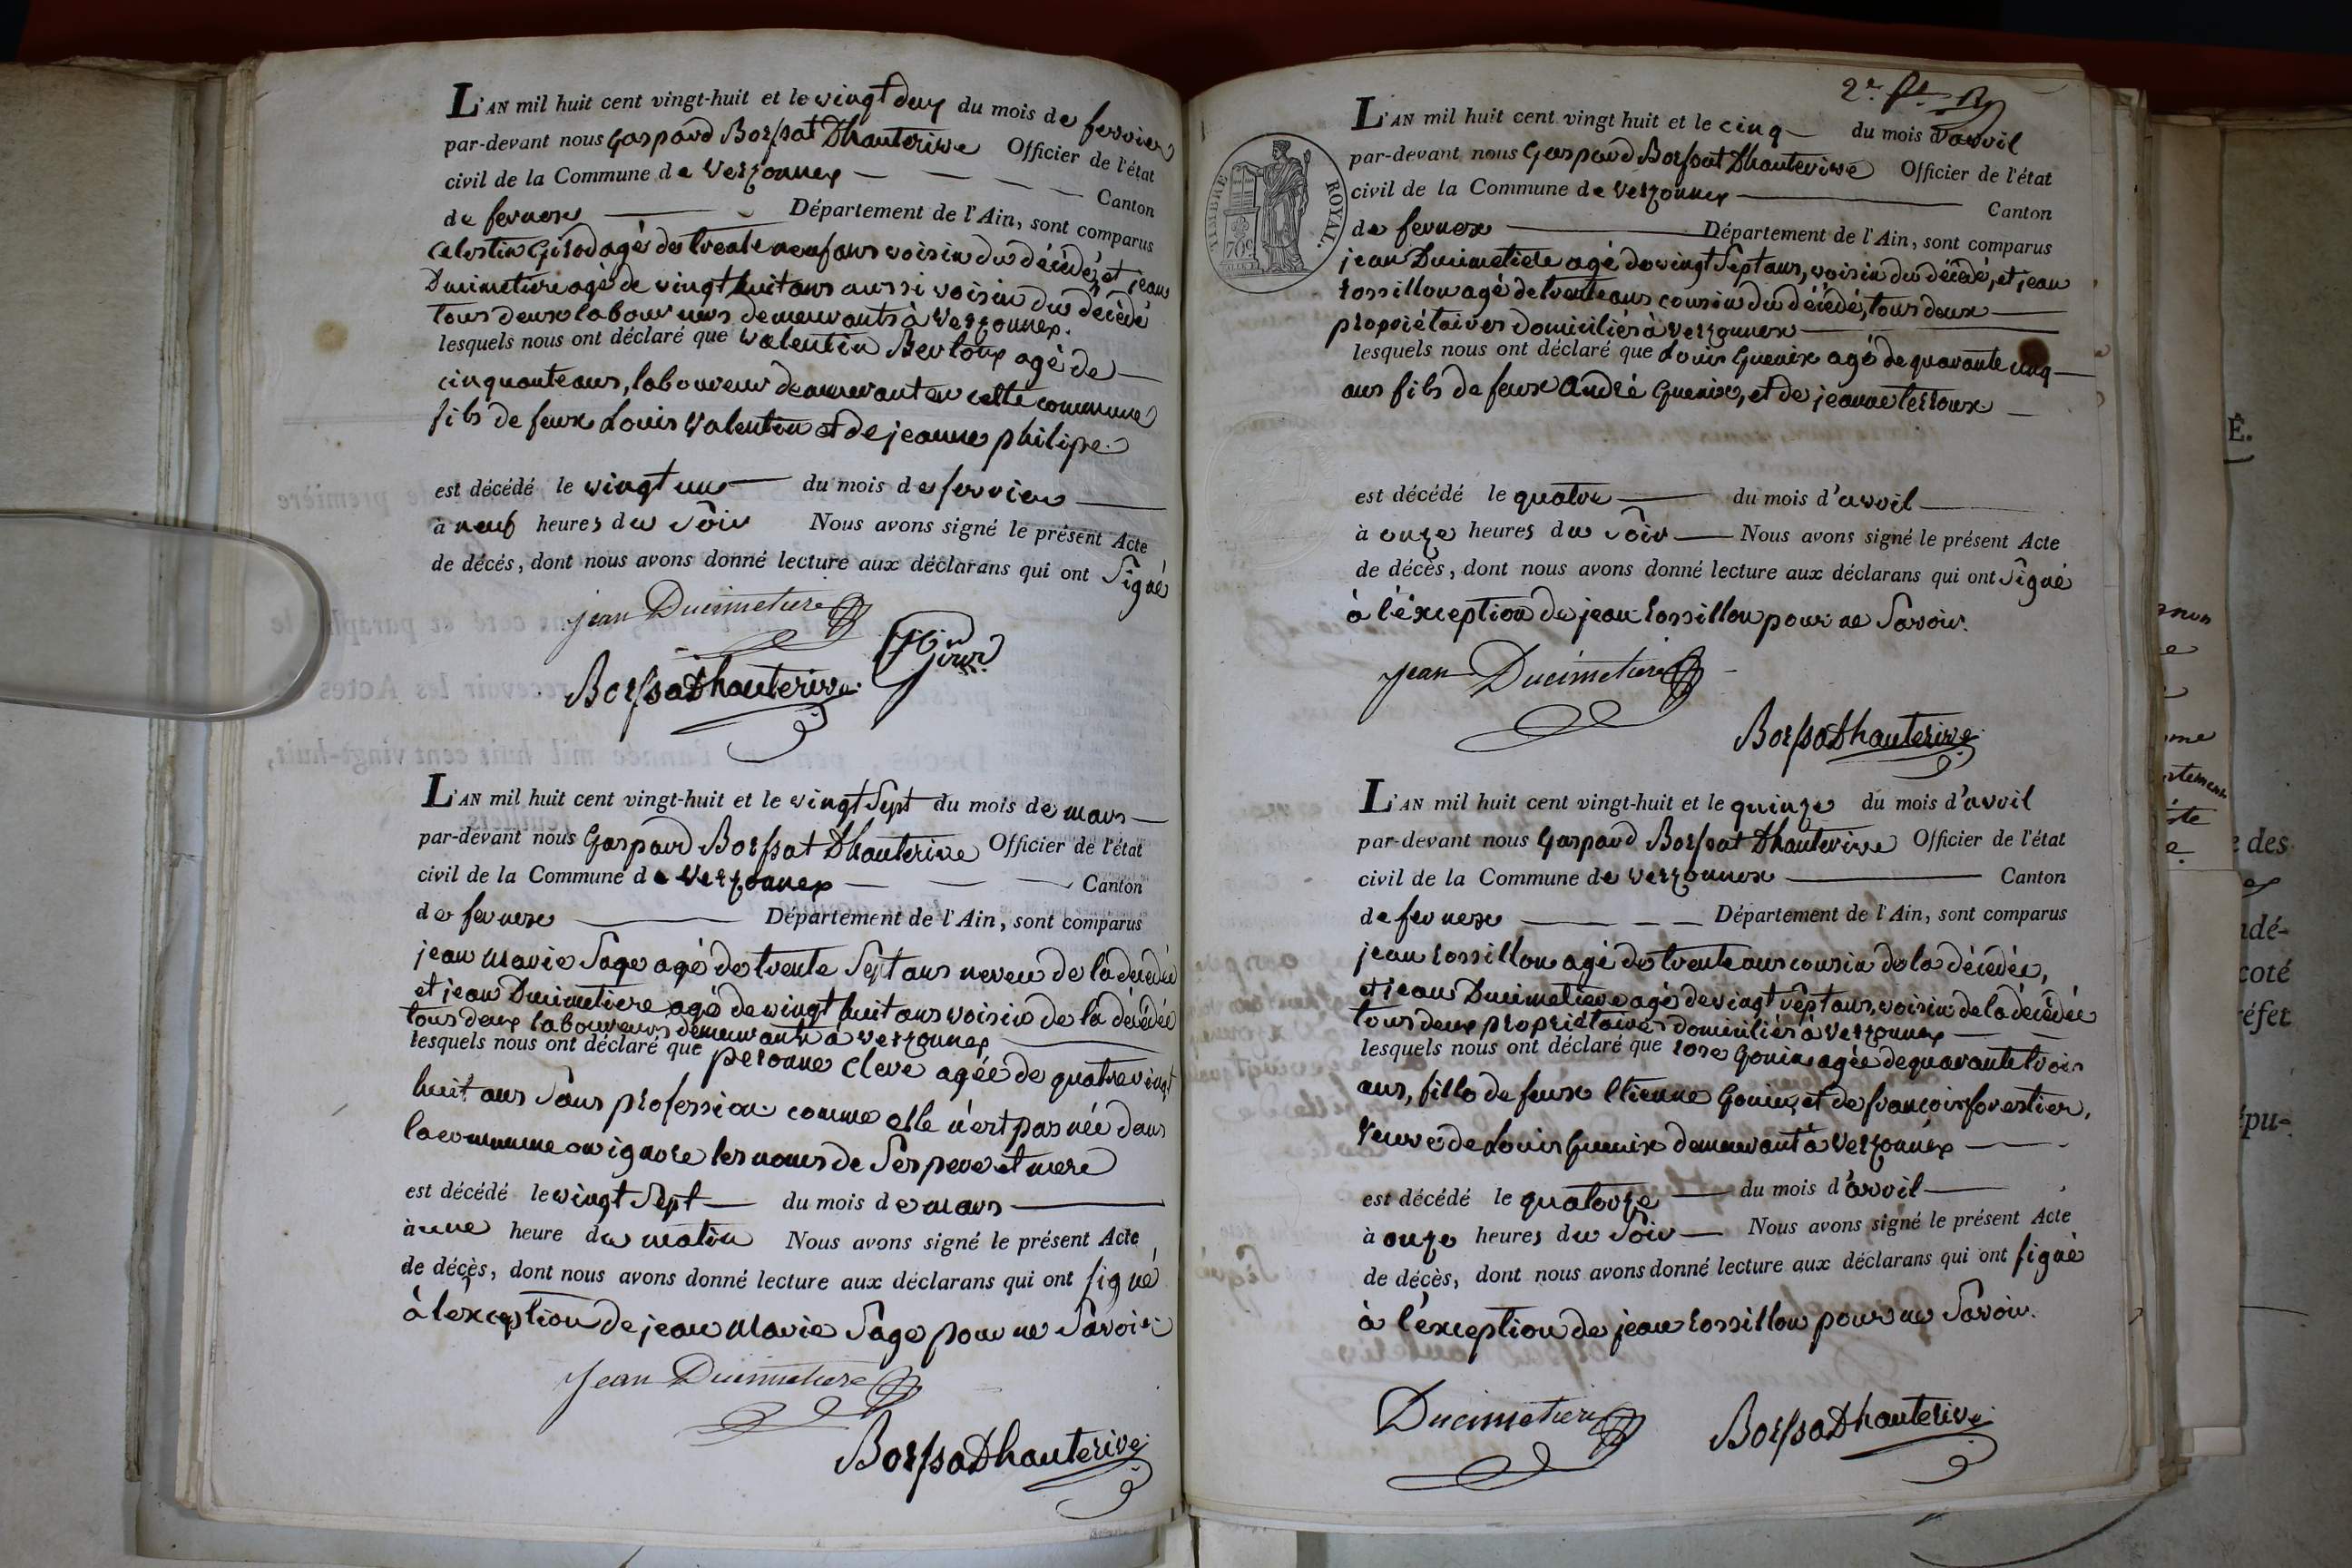 L'AN mil huit cent vingt-huit et le vingt deux du mois de fevrier
par-devant nous Gaspard Borssat Dhauterive Officier de l'état
civil de la Commune de Verzonnex Canton
de fernex Département de l'Ain, sont comparus
Celestin Girod agé de trente neuf ans voisin du décédé, et jean
Ducimetiere agé de vingt huit ans aussi voisin du décédé
tous deux laboureurs demeurants à Verzonnex.
lesquels nous ont déclaré que Valentin Bertoux agé de
cinquante ans, laboureur demeurant en cette commune
fils de feux Louis Valentin et de jeanne philipe
est décédé le vingt un du mois de fevrier
à neuf heures du Soir Nous avons signé le présent Acte
de décés, dont nous avons donné lecture aux déclarans qui ont Signé
jean Ducimetiere
Borssat Dhauterive
L'AN mil huit cent vingt-huit et le vingt Sept du mois de mars
par-devant nous Gaspard Borssat Dhauterive Officier de l'état
civil de la Commune de Verzonnex Canton
de fernex Département de l'Ain, sont comparus
jean Marie Sage agé de trente Sept ans neveu de la décédée
et jean Ducimetiere agé de vingt huit ans voisin de la décédée
tous deux laboureurs demeurants à Verzonnex
lesquels nous ont déclaré que peronne Cleve agée de quatre vingt
huit ans Sans profession comme elle n'est pas née dans
la commune on ignore les noms de Ses pere et mere
est décédé le vingt Sept du mois de mars
à une heure du matin Nous avons signé le présent Acte
de décès, dont nous avons donné lecture aux déclarans qui ont signé
à l'éxception de jean Marie Sage pour ne Savoir
Jean Ducimetiere
Borssat Dhauterive
2e. ft.
TIMBRE ROYAL.
70c.
L'AN mil huit cent vingt huit et le cinq du mois d'avril
par-devant nous Gaspard Borssat Dhauterive Officier de l'état
civil de la Commune de Verzonnex Canton
de fernex Département de l'Ain, sont comparus
jean Ducimetiere agé de vingt Sept ans, voisin du décédé, et jean
rossillon agé de trente ans cousin du décédé, tous deux
propriétaires domiciliés à Verzonnex
lesquels nous ont déclaré que Louis Guenix agé de quarante cinq
ans fils de feux André Guenix, et de jeanne lerroux
est décédé le quatre du mois d'avril
à onze heures du Soir Nous avons signé le présent Acte
de décès, dont nous avons donné lecture aux déclarans qui ont Signé
à l'éxception de jean rossillon pour ne Savoir.
Jean Ducimetiere
Borssat Dhauterive
L'AN mil huit cent vingt-huit et le quinze du mois d'avril
par-devant nous Gaspard Borssat Dhauterive Officier de l'état
civil de la Commune de Verzonnex Canton
de fernex Département de l'Ain, sont comparus
jean rossillon agé de trente ans cousin de la décédée,
et jean Ducimetiere agé de vingt sept ans, voisin de la décédée
tous deux propriétaires domiciliés à Verzonnex
lesquels nous ont déclaré que rose Gonin agée de quarante trois
ans, fille de feux Etienne Gonin, et de françoise forestier,
Veuve de Louis Guenix demeurant à Verzonnex
est décédé le quatorze du mois d'avril
à onze heures du Soir Nous avons signé le présent Acte
de décès, dont nous avons donné lecture aux déclarans qui ont signé
à l'éxception de jean rossillon pour ne Savoir.
Ducimetiere
Borssat Dhauterive